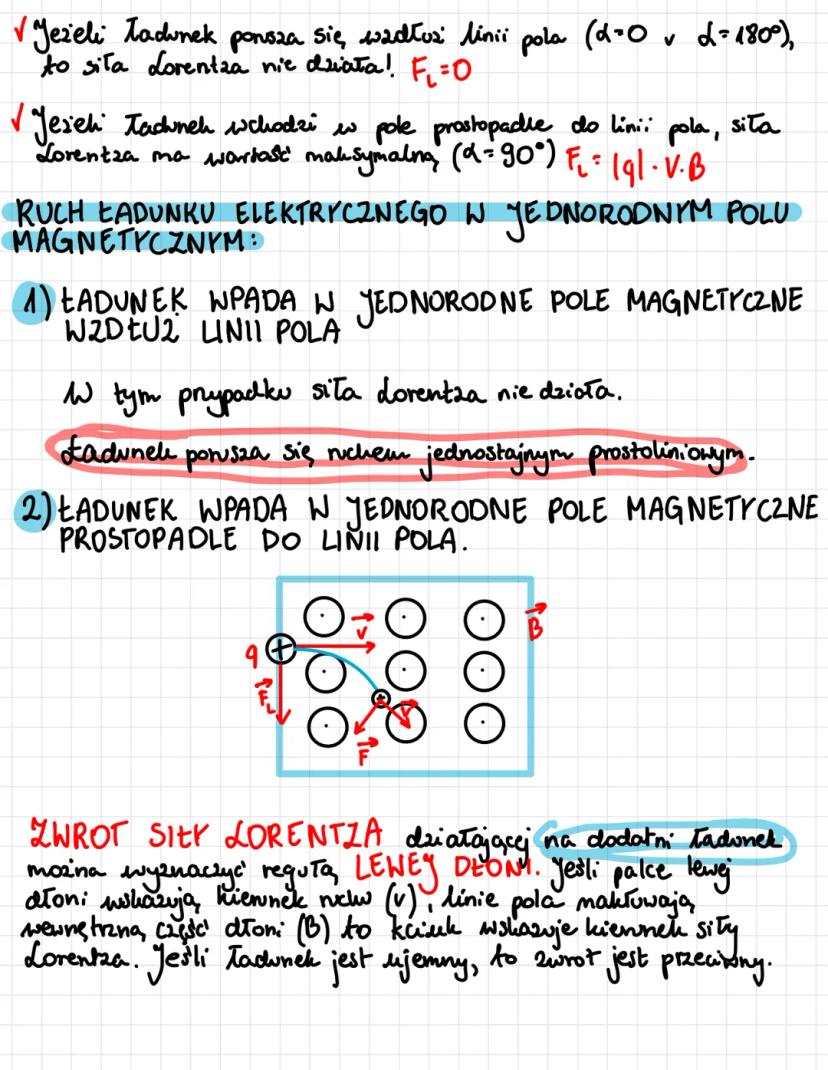 √ Jeżeli ładunek porusza się wzdłuż linii pola (α=0 v α=180°),
to siła Lorentza nie działa! F_L=0
√ Jeżeli ładunek wchodzi w pole prostopadle do linii pola, siła
Lorentza ma wartość maksymalną (α=90°) F_L=|q|·V·B
RUCH ŁADUNKU ELEKTRYCZNEGO W JEDNORODNYM POLU
MAGNETYCZNYM:
1) ŁADUNEK WPADA W JEDNORODNE POLE MAGNETYCZNE
WZDŁUŻ LINII POLA
W tym przypadku siła Lorentza nie działa.
Ładunek porusza się ruchem jednostajnym prostoliniowym.
2) ŁADUNEK WPADA W JEDNORODNE POLE MAGNETYCZNE
PROSTOPADLE DO LINII POLA.
B
V
q +
F_L
+
V
F
ZWROT SIŁY LORENTZA działającej na dodatni ładunek
można wyznaczyć regułą LEWEJ DŁONI. Jeśli palce lewej
dłoni wskazują kierunek ruchu (v), linie pola nakłuwają
wewnętrzną część dłoni (B) to kciuk wskazuje kierunek siły
Lorentza. Jeśli ładunek jest ujemny, to zwrot jest przeciwny.